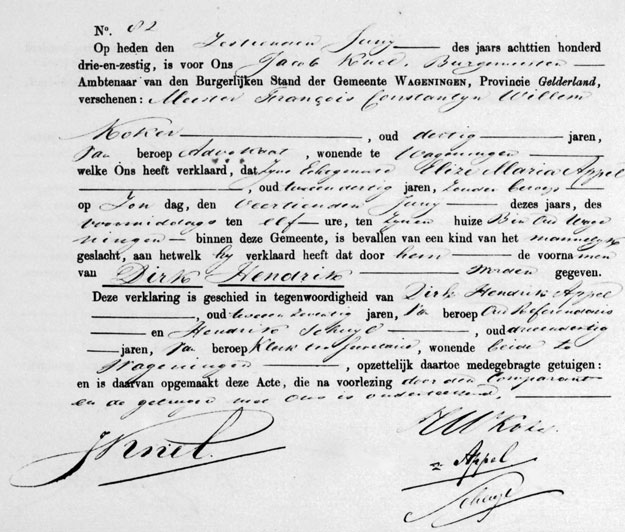 N°. 82
Op heden den Zestienden Juny des jaars achttien honderd
drie-en-zestig, is voor Ons Jacob Kniel, Burgemeester
Ambtenaar van den Burgerlijken Stand der Gemeente WAGENINGEN, Provincie Gelderland,
verschenen: Meester François Constantyn Willem
Koker, oud dertig jaren,
Van beroep Advokaat, wonende te Wageningen
welke Ons heeft verklaard, dat zyne Echtgenoote Elize Maria Appel
, oud jaren, Zonder beroep
op Zon dag, den Veertienden Juny dezes jaars, des
voormiddags ten elf ure, ten Zynen huize Wage
ningen binnen deze Gemeente, is bevallen van een kind van het mannelyk
geslacht, aan hetwelk hy verklaard heeft dat door hem de voorna men
van Dirk Hendrik worden gegeven.
Deze verklaring is geschied in tegenwoordigheid van Dirk Hendrik Appel
, oud jaren, Van beroep
en Hendrik Scheuyl, oud jaren,
jaren, Van beroep Klerk ter Secretarie, wonende beide te
Wageningen, opzettelijk daartoe medegebragte getuigen:
en is daarvan opgemaakt deze Acte, die na voorlezing door den Comparant
en de getuigen met Ons is onderteekend.
JKniel.
Appel